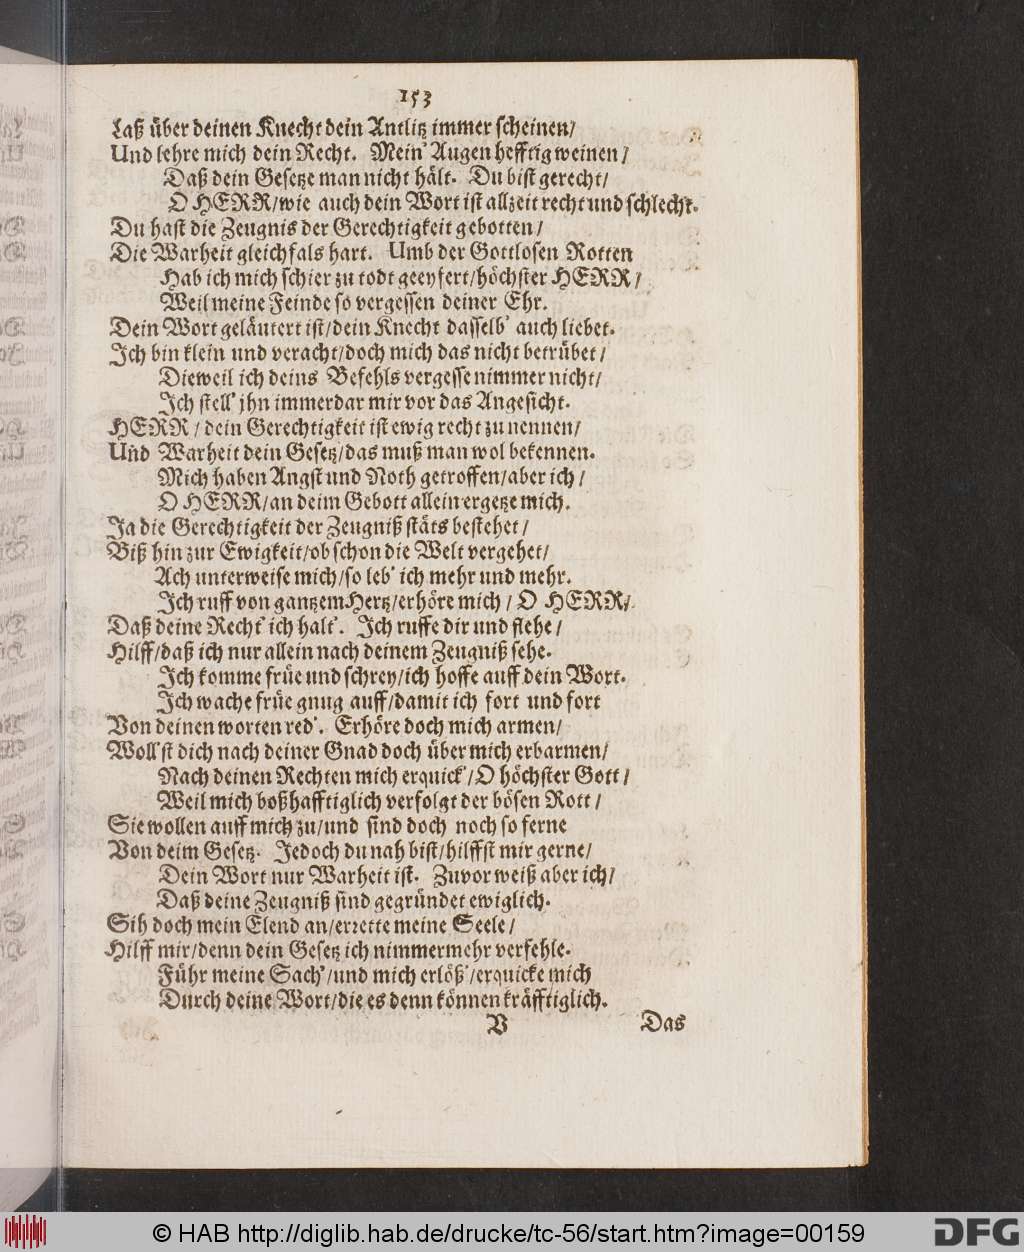 153
Laß über deinen Knecht dein Antlitz immer scheinen/
Und lehre mich dein Recht. Mein' Augen hefftig weinen/
Daß dein Gesetze man nicht hält. Du bist gerecht/
O HERR/wie auch dein Wort ist allzeit recht und schlecht.
Du hast die Zeugnis der Gerechtigkeit gebotten/
Die Warheit gleichfals hart. Umb der Gottlosen Rotten
Hab ich mich schier zu todt geeyfert/höchster HERR/
Weil meine Feinde so vergessen deiner Ehr.
Dein Wort geläutert ist/dein Knecht dasselb' auch liebet.
Ich bin klein und veracht/doch mich das nicht betrübet/
Dieweil ich deins Befehls vergesse nimmer nicht/
Ich stell' jhn immerdar mir vor das Angesicht.
HERR/ dein Gerechtigkeit ist ewig recht zu nennen/
Und Warheit dein Gesetz/das muß man wol bekennen.
Mich haben Angst und Noth getroffen/aber ich/
O HERR/an deim Gebott allein ergetze mich.
Ja die Gerechtigkeit der Zeugniß stäts bestehet/
Biß hin zur Ewigkeit/ob schon die Welt vergehet/
Ach unterweise mich/so leb' ich mehr und mehr.
Ich ruff von gantzem Hertz/erhöre mich/ O HERR/
Daß deine Recht' ich halt'. Ich ruffe dir und flehe/
Hilff/daß ich nur allein nach deinem Zeugniß sehe.
Ich komme früe und schrey/ich hoffe auff dein Wort.
Ich wache früe gnug auff/damit ich fort und fort
Von deinen worten red'. Erhöre doch mich armen/
Woll'st dich nach deiner Gnad doch über mich erbarmen/
Nach deinen Rechten mich erquick'/O höchster Gott/
Weil mich boßhafftiglich verfolgt der bösen Rott/
Sie wollen auff mich zu/und sind doch noch so ferne
Von deim Gesetz. Jedoch du nah bist/hilffst mir gerne/
Dein Wort nur Warheit ist. Zuvor weiß aber ich/
Daß deine Zeugniß sind gegründet ewiglich.
Sih doch mein Elend an/errette meine Seele/
Hilff mir/denn dein Gesetz ich nimmermehr verfehle.
Führ meine Sach'/und mich erlöß'/erquicke mich
Durch deine Wort/die es denn können kräfftiglich.
V Das
© HAB http://diglib.hab.de/drucke/tc-56/start.htm?image=00159
DFG